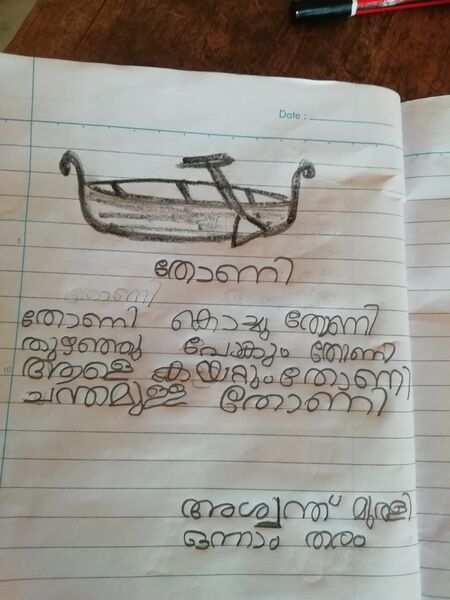 Date :
തോണി
തോണി
തോണി കൊച്ചു തോണി
5
തുഴഞ്ഞു പോകും തോണി
10
ആളെ കയറ്റും തോണി
ചന്തമുള്ള തോണി
അശ്വന്ത് മുരളി
ഒന്നാം തരം